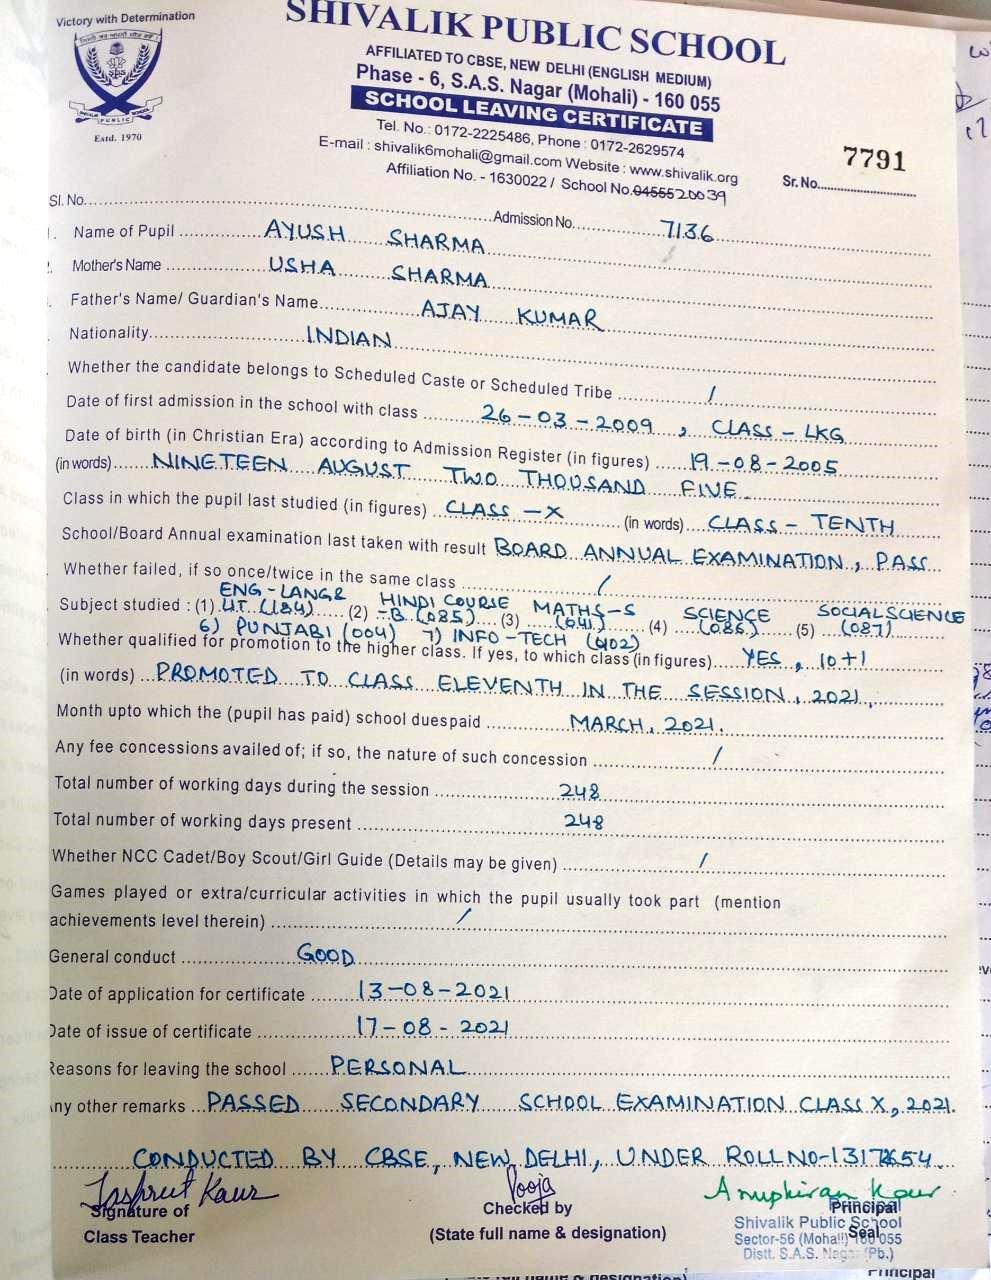 Victory with Determination
SHIVALIK PUBLIC SCHOOL
AFFILIATED TO CBSE, NEW DELHI (ENGLISH MEDIUM)
Phase - 6, S.A.S. Nagar (Mohali) - 160 055
SCHOOL LEAVING CERTIFICATE
Estd. 1970
Tel. No.: 0172-2225486, Phone : 0172-2629574
E-mail : shivalik6mohali@gmail.com Website : www.shivalik.org
Affiliation No. - 1630022 / School No. 04555 20039
Sr.No. 7791
Sl. No. Admission No. 7136
Name of Pupil AYUSH SHARMA
Mother's Name USHA SHARMA
Father's Name/ Guardian's Name AJAY KUMAR
Nationality INDIAN
Whether the candidate belongs to Scheduled Caste or Scheduled Tribe /
Date of first admission in the school with class 26-03-2009, CLASS-LKG
Date of birth (in Christian Era) according to Admission Register (in figures) 19-08-2005
(in words) NINETEEN AUGUST TWO THOUSAND FIVE
Class in which the pupil last studied (in figures) CLASS-X (in words) CLASS-TENTH
School/Board Annual examination last taken with result BOARD ANNUAL EXAMINATION, PASS
Whether failed, if so once/twice in the same class /
Subject studied : (1) ENG-LANG& LIT (184) (2) HINDI COURSE -B (085) (3) MATHS-S (041) (4) SCIENCE (086) (5) SOCIAL SCIENCE (087)
6) PUNJABI (004) 7) INFO-TECH (402)
Whether qualified for promotion to the higher class. If yes, to which class (in figures) YES, 10+1
(in words) PROMOTED TO CLASS ELEVENTH IN THE SESSION, 2021.
Month upto which the (pupil has paid) school duespaid MARCH, 2021.
Any fee concessions availed of; if so, the nature of such concession /
Total number of working days during the session 248
Total number of working days present 248
Whether NCC Cadet/Boy Scout/Girl Guide (Details may be given) /
Games played or extra/curricular activities in which the pupil usually took part (mention
achievements level therein) /
General conduct GOOD
Date of application for certificate 13-08-2021
Date of issue of certificate 17-08-2021
Reasons for leaving the school PERSONAL
Any other remarks PASSED SECONDARY SCHOOL EXAMINATION CLASS X, 2021.
CONDUCTED BY CBSE, NEW DELHI, UNDER ROLL NO-
Jaspreet Kaur Pooja Anupkiran Kaur
Signature of Checked by Principal
Class Teacher (State full name & designation) Seal
Principal
Shivalik Public School
Sector-56 (Mohali) 160 055
Distt. S.A.S. Nagar (Pb.)
Principal